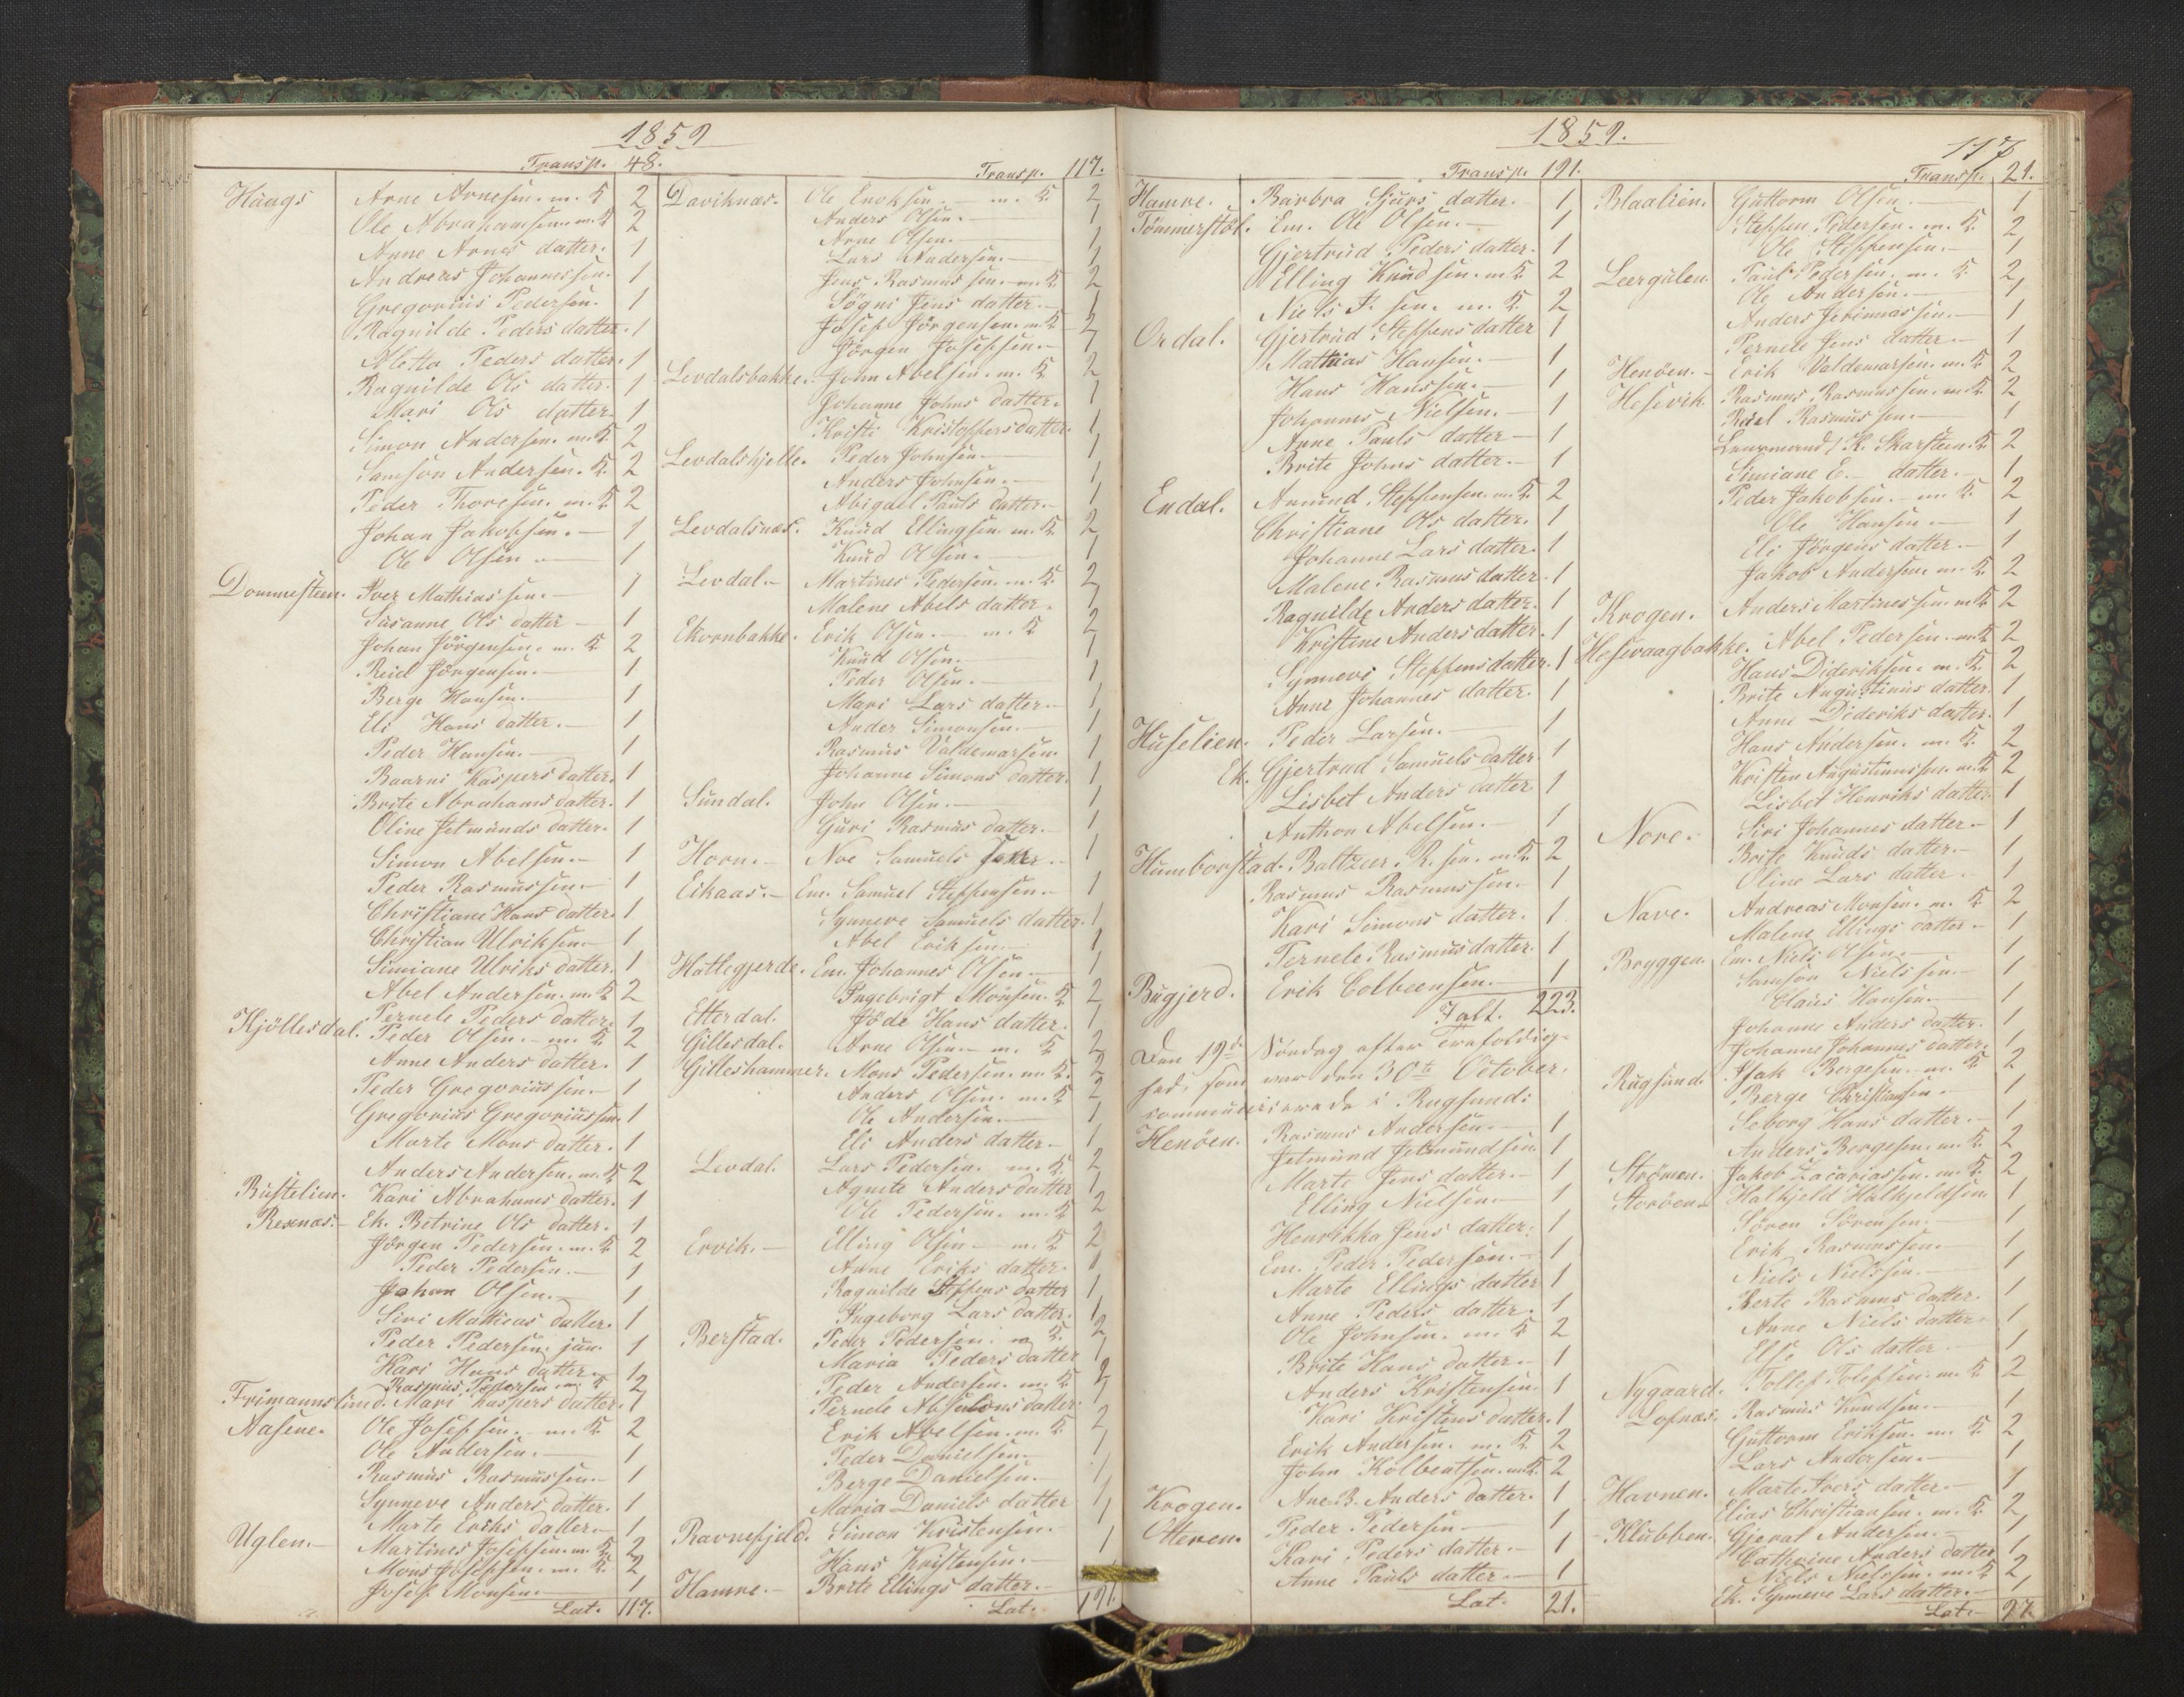 1859
Transp. 48.
Haugs Arne Arnesen. m. K 2
Ole Abrahamsen. m. K 2
Anne Arnes datter. 1
Andreas Johannessen. 1
Gregorius Pedersen. 1
Ragnilde Peders datter. 1
Aletta Peders datter. 1
Ragnilde Ols datter. 1
Mari Ols datter. 1
Simon Andersen. m. K 2
Samson Andersen. K. 2
Peder Thoresen. m. K 2
Johan Jakobsen. – 1
Ole Olsen – 1
Dommesteen. Iver Mathiassen. – 1
Susanne Ols datter – 1
Johan Jörgensen. m. K 2
Reiel Jörgensen. – 1
Berge Hansen. – 1
Eli Hans datter. – 1
Peder Hansen. – 1
Baarni Kaspers datter. 1
Brite Abrahams datter. 1
Oline Jetmunds datter. 1
Simon Abelsen. – 1
Peder Rasmussen. – 1
Christiane Hans datter. 1
Christian Ulriksen. 1
Simiane Ulriks datter. 1
Abel Andersen. m. K 2
Pernele Peders datter. 1
Kjöllesdal. Peder Olsen. – m. K 2
Anne Anders datter. 1
Peder Gregoriussen. – 1
Gregorius Gregoriussen. 1
Marte Mons datter. 1
Anders Andersen. m. K 2
Rustelien. Kari Abrahams datter. 1
Resenæs. – Ek. Betrine Ols datter. 1
Jörgen Pedersen. m. K 2
Peder Pedersen. – 1
Johan Olsen. – 1
Siri Mathias datter. 1
Peder Pedersen. jun. 1
Kari Hans datter. 1
Rasmus Pedersen m. K 2
Frimannslund. Mari Kaspers datter. 1
Aasene. Ole Josefsen. – m. K 2
Ole Andersen. – 1
Rasmus Rasmussen. – 1
Synneve Anders datter. 1
Marte Eriks datter. – 1
Uglen. – Martines Josefsen. m. K 2
Mons Josefsen. m. K. 2
Josef Monsen. – 1
Lat. 117.
Transp. 117.
Daviknæs. Ole Enoksen. – m. K. 2
Anders Olsen. – 1
Arne Olsen. – 1
Lars Andersen. – 1
Jens Rasmussen. m. K 2
Sögni Jens datter. – 1
Josef Jörgensen. m. K 2
Jörgen Josefsen. – 1
Levdalsbakke. John Abelsen. m. K 2
Johanne Johns datter. 1
Kristi Kristoffers datter. 1
Levdalshjelle. Peder Johnsen. – 1
Anders Johnsen. – 1
Abigael Pauls datter. – 1
Levdalsnæs. Knud Ellingsen. m. K 2
Knud Olsen. – 1
Levdal. – Martines Pedersen. m. K. 2
Malene Abels datter. 1
Ekornbakke. Erik Olsen. – m. K 2
Knud Olsen. 1
Peder Olsen. – 1
Mari Lars datter. – 1
Ander Simonsen. – 1
Rasmus Valdemarsen. 1
Johanne Simons datter. 1
Sundal. John Olsen. – 1
Guri Rasmus datter. – 1
Horn. – Noe Samuels 1
Eikaas. – Em. Samuel Steffensen. – 1
Synneve Samuels datter. 1
Abel Eriksen. – 1
Hattegjerde. Em. Johannes Olsen. – 1
Ingebrigt Mönsen. K 2
Etterdal. Jöde Hans datter. 1
Gillesdal. Arne Olsen. – m. K 2
Gilleshammer. Mons Pedersen. m. K. 2
Anders Olsen. m. K 2
Ole Andersen. – 1
Eli Anders datter. – 1
Levdal. Lars Pedersen. m. K. 2
Agnete Anders datter 1
Ole Pedersen. m. K 2
Ervik. – Elling Olsen – m. K 2
Anne Eriks datter. 1
Ragnilde Steffens datter 1
Ingeborg Lars datter. 1
Berstad. Peder Pedersen. m K. 2
Maria Peders datter 1
Peder Andersen. m. K 2
Pernele Absalons datter. 1
Erik Abelsen. m. K 2
Peder Danielsen. – 1
Berge Danielsen. 1
Maria Daniels datter 1
Ravnefjeld. Simon Kristensen. 1
Hans Kristensen. – 1
Hamre. – Brite Ellings datter. – 1
Lat. 191.
1859.
117
Transp. 191.
Hamre. Barbra Sjurs datter. 1
Tömmerstöl. Em. Ole Olsen. – 1
Gjertrud Peders datter. 1
Elling Knudsen. m. K 2
Niels P. sen. m. K 2
Ordal. Gjertrud Steffens datter 1
Mathias Hansen. – 1
Hans Hanssen. – 1
Johannes Nielsen. – 1
Anne Pauls datter – 1
Brite Johns datter. – 1
Endal. Amund Steffensen. m. K 2
Christiane Ols datter. 1
Johanne Lars datter. 1
Malene Rasmus datter. 1
Ragnilde Anders datter. 1
Kristine Anders datter. 1
Synnevi Steffens datter. 1
Anne Johannes datter. 1
Huselien. Peder Larsen. – 1
Ek. Gjertrud Samuels datter 1
Lisbet Anders datter 1
Anthon Abelsen. – 1
Humborstad. Baltzer R. sen. m. K 2
Rasmus Rasmussen. 1
Kari Simons datter. 1
Pernele Rasmus datter. 1
Bugjerd. Erik Colbeensen. – 1
Talt. 223.
Den 19de Söndag efter Trefoldig-
hed, som var den 30te October,
communicerede i Rugsund:
Henöen. Rasmus Andersen. – 1
Jetmund Jetmundsen. 1
Marte Jens datter. – 1
Elling Nielsen. – 1
Henrikka Jens datter. 1
Em. Peder Pedersen. – 1
Marte Ellings datter 1
Anne Peders datter. 1
Ole Johnsen. m. K 2
Brite Hans datter. – 1
Anders Kristensen. 1
Kari Kristens datter. 1
Erik Andersen. m. K. 2
John Kolbentsen. m. K. 2
Krogen. Ane B. Anders datter. 1
Otteren. Peder Pedersen – 1
Kari Peders datter. – 1
Anne Pauls datter. – 1
Lat. 21.
Transp. 21.
Blaalien. Guttorm Olsen. 1
Steffen Pedersen. m. K. 2
Ole Steffensen. – 1
Leergulen. Paul Pedersen. m. K 2
Ole Andersen. – 1
Anders Jerimiassen. – 1
Pernele Jens datter. – 1
Henöen. – Erik Valdemarsen. m. K 2
Hessevik. Rasmus Rasmussen. m. K 2
Reiel Rasmussen. – 1
Lensmand K. Skarsteen. K 2
Simiane E. datter. – 1
Peder Jakobsen. – m K. 2
Ole Hansen. – 1
Eli Jörgens datter. – 1
Jakob Andersen. m. K 2
Krogen. Anders Martinessen. m. K 2
Hessevaagbakke. Abel Pedersen. m. K 2
Hans Dideriksen. m. K. 2
Brite Augustinus datter. 1
Anne Dideriks datter. 1
Hans Andersen. m. K. 2
Kristen Augustinussen. m. K 2
Lisbet Henriks datter. 1
Nore. Siri Johannes datter. – 1
Brite Knuds datter. – 1
Oline Lars datter. – 1
Nave. Andreas Monsen. m. K 2
Malene Ellings datter – 1
Bryggen. Em. Niels Olsen. – 1
Samson Nielssen. – 1
Claus Hansen. – 1
Johanne Anders datter. 1
Johanne Johannes datter. 1
Rugsund. Isak Bergesen. – m. K 2
Berge Christiansen. – 1
Seborg Hans datter. – 1
Anders Bergesen. m. K. 2
Strömen. Jakob Zacariassen. m. K. 2
Storöen. Halkjeld Halkjeldsen 1
Sören Sörensen. – 1
Erik Rasmussen. – 1
Niels Nielssen. – 1
Berte Rasmus datter. 1
Anne Niels datter. 1
Else Ols datter. – 1
Nygaard. Tollef Tolefsen. m. K 2
Lofnæs. Rasmus Knudsen. – 1
Guttorm Eriksen. m. K 2
Lars Andersen. – 1
Havnen. Marte Ivers datter. – 1
Elias Christiansen. m. K 2
Klubben. Gjerat Andersen. – 1
Cathrine Anders datter 1
Niels Nielssen. m. K 2
Ek. Synneve Lars datter. – 1
Lat. – 97.